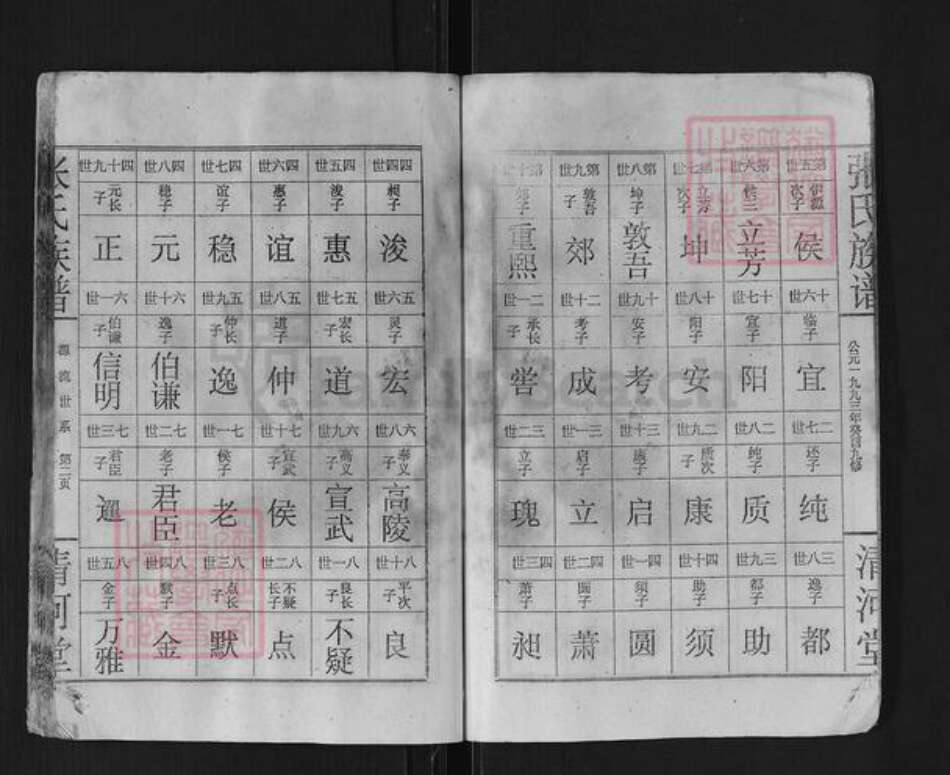 張氏族谱
公元一九九三年癸酉九修
清河堂
第五世 第六世 第七世 第八世 第九世 第十世
侯 立芳 坤 敦吾 郊 重熙
立芳次子 坤子 敦吾子 郊子
十六世 十七世 十八世 十九世 二十世 二一世
临子 宜子 阳子 安子 考子 承长子
宜 阳 安 考 成 喾
二七世 二八世 二九世 三十世 三一世 三二世
还子 纯子 质次子 惠子 启子 立子
纯 质 康 启 立 瑰
三八世 三九世 四十世 四一世 四二世 四三世
逸子 都子 助子 须子 圆子 萧子
都 助 须 圆 萧 昶
四四世 四五世 四六世 四七世 四八世 四十九世
昶子 浚子 惠子 谊子 稳子 元长子
浚 惠 谊 稳 元 正
五六世 五七世 五八世 五九世 六十世 六一世
灵子 宏长子 道子 仲长子 逸子 伯谦子
宏 道 仲 逸 伯谦 信明
六八世 六九世 七十世 七一世 七二世 七三世
泰义子 高义子 宣武子 侯子 老子 君臣子
高陵 宣武 侯 老 君臣 暹
八十世 八一世 八二世 八三世 八四世 八五世
平次子 良长子 不疑长子 点长子 默子 金子
良 不疑 点 默 金 万雅
张氏族谱
源流世系 第二页
清河堂